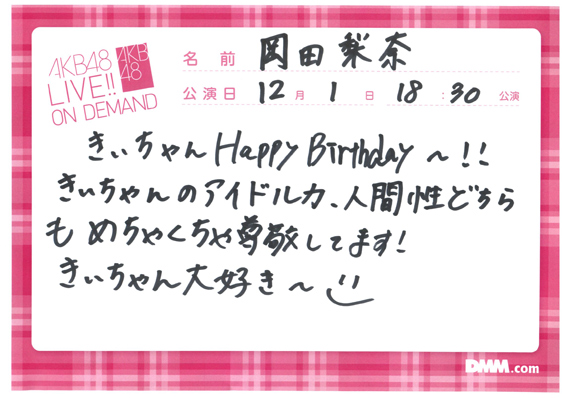 AKB48
LIVE!!
ON DEMAND
AKB
48
名 前 岡田梨奈
公演日 12 月 1 日 18 : 30 公演
きぃちゃんHappy Birthday〜!!
きぃちゃんのアイドル力、人間性どちら
も めちゃくちゃ尊敬してます!
きぃちゃん大好き〜
DMM.com